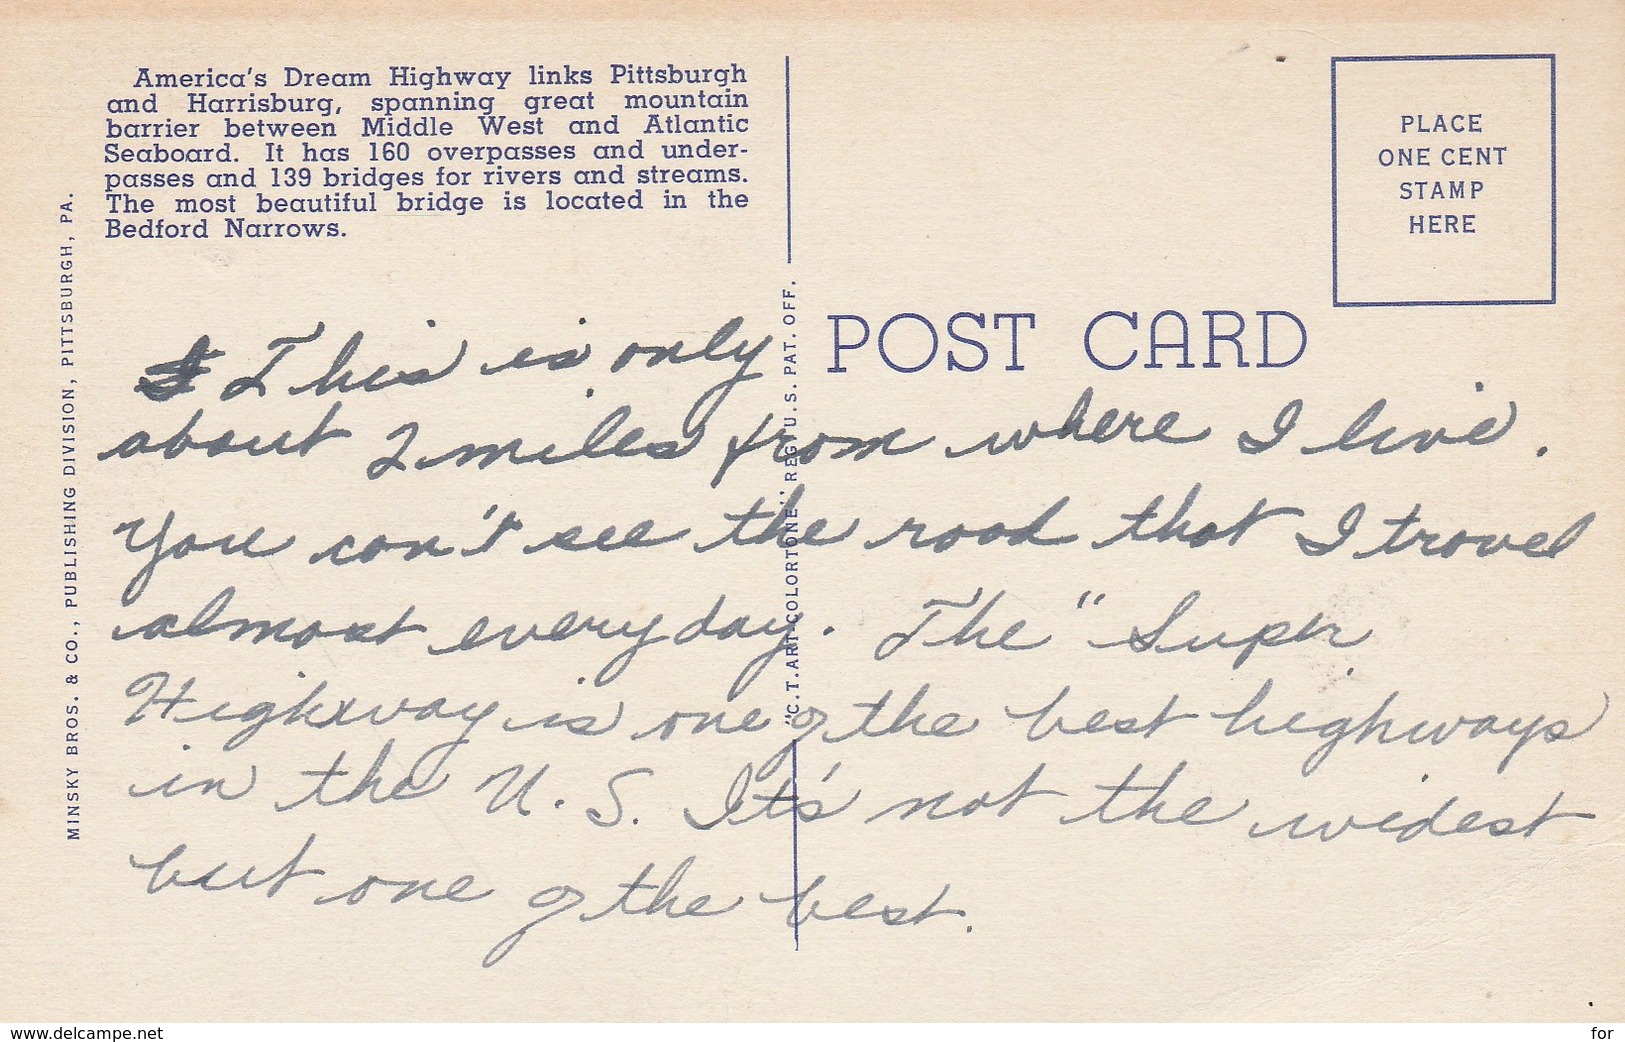 America's Dream Highway links Pittsburgh
and Harrisburg, spanning great mountain
barrier between Middle West and Atlantic
Seaboard. It has 160 overpasses and under-
passes and 139 bridges for rivers and streams.
The most beautiful bridge is located in the
Bedford Narrows.
PLACE
ONE CENT
STAMP
HERE
POST CARD
MINSKY BROS. & CO., PUBLISHING DIVISION, PITTSBURGH, PA.
"C.T.ART-COLORTONE" REG. U.S. PAT. OFF.
This is only
about 2 miles from where I live.
You can't see the road that I travel
almost everyday. The "Super
Highway is one of the best highways
in the U.S. It's not the widest
but one of the best.
www.delcampe.net
for